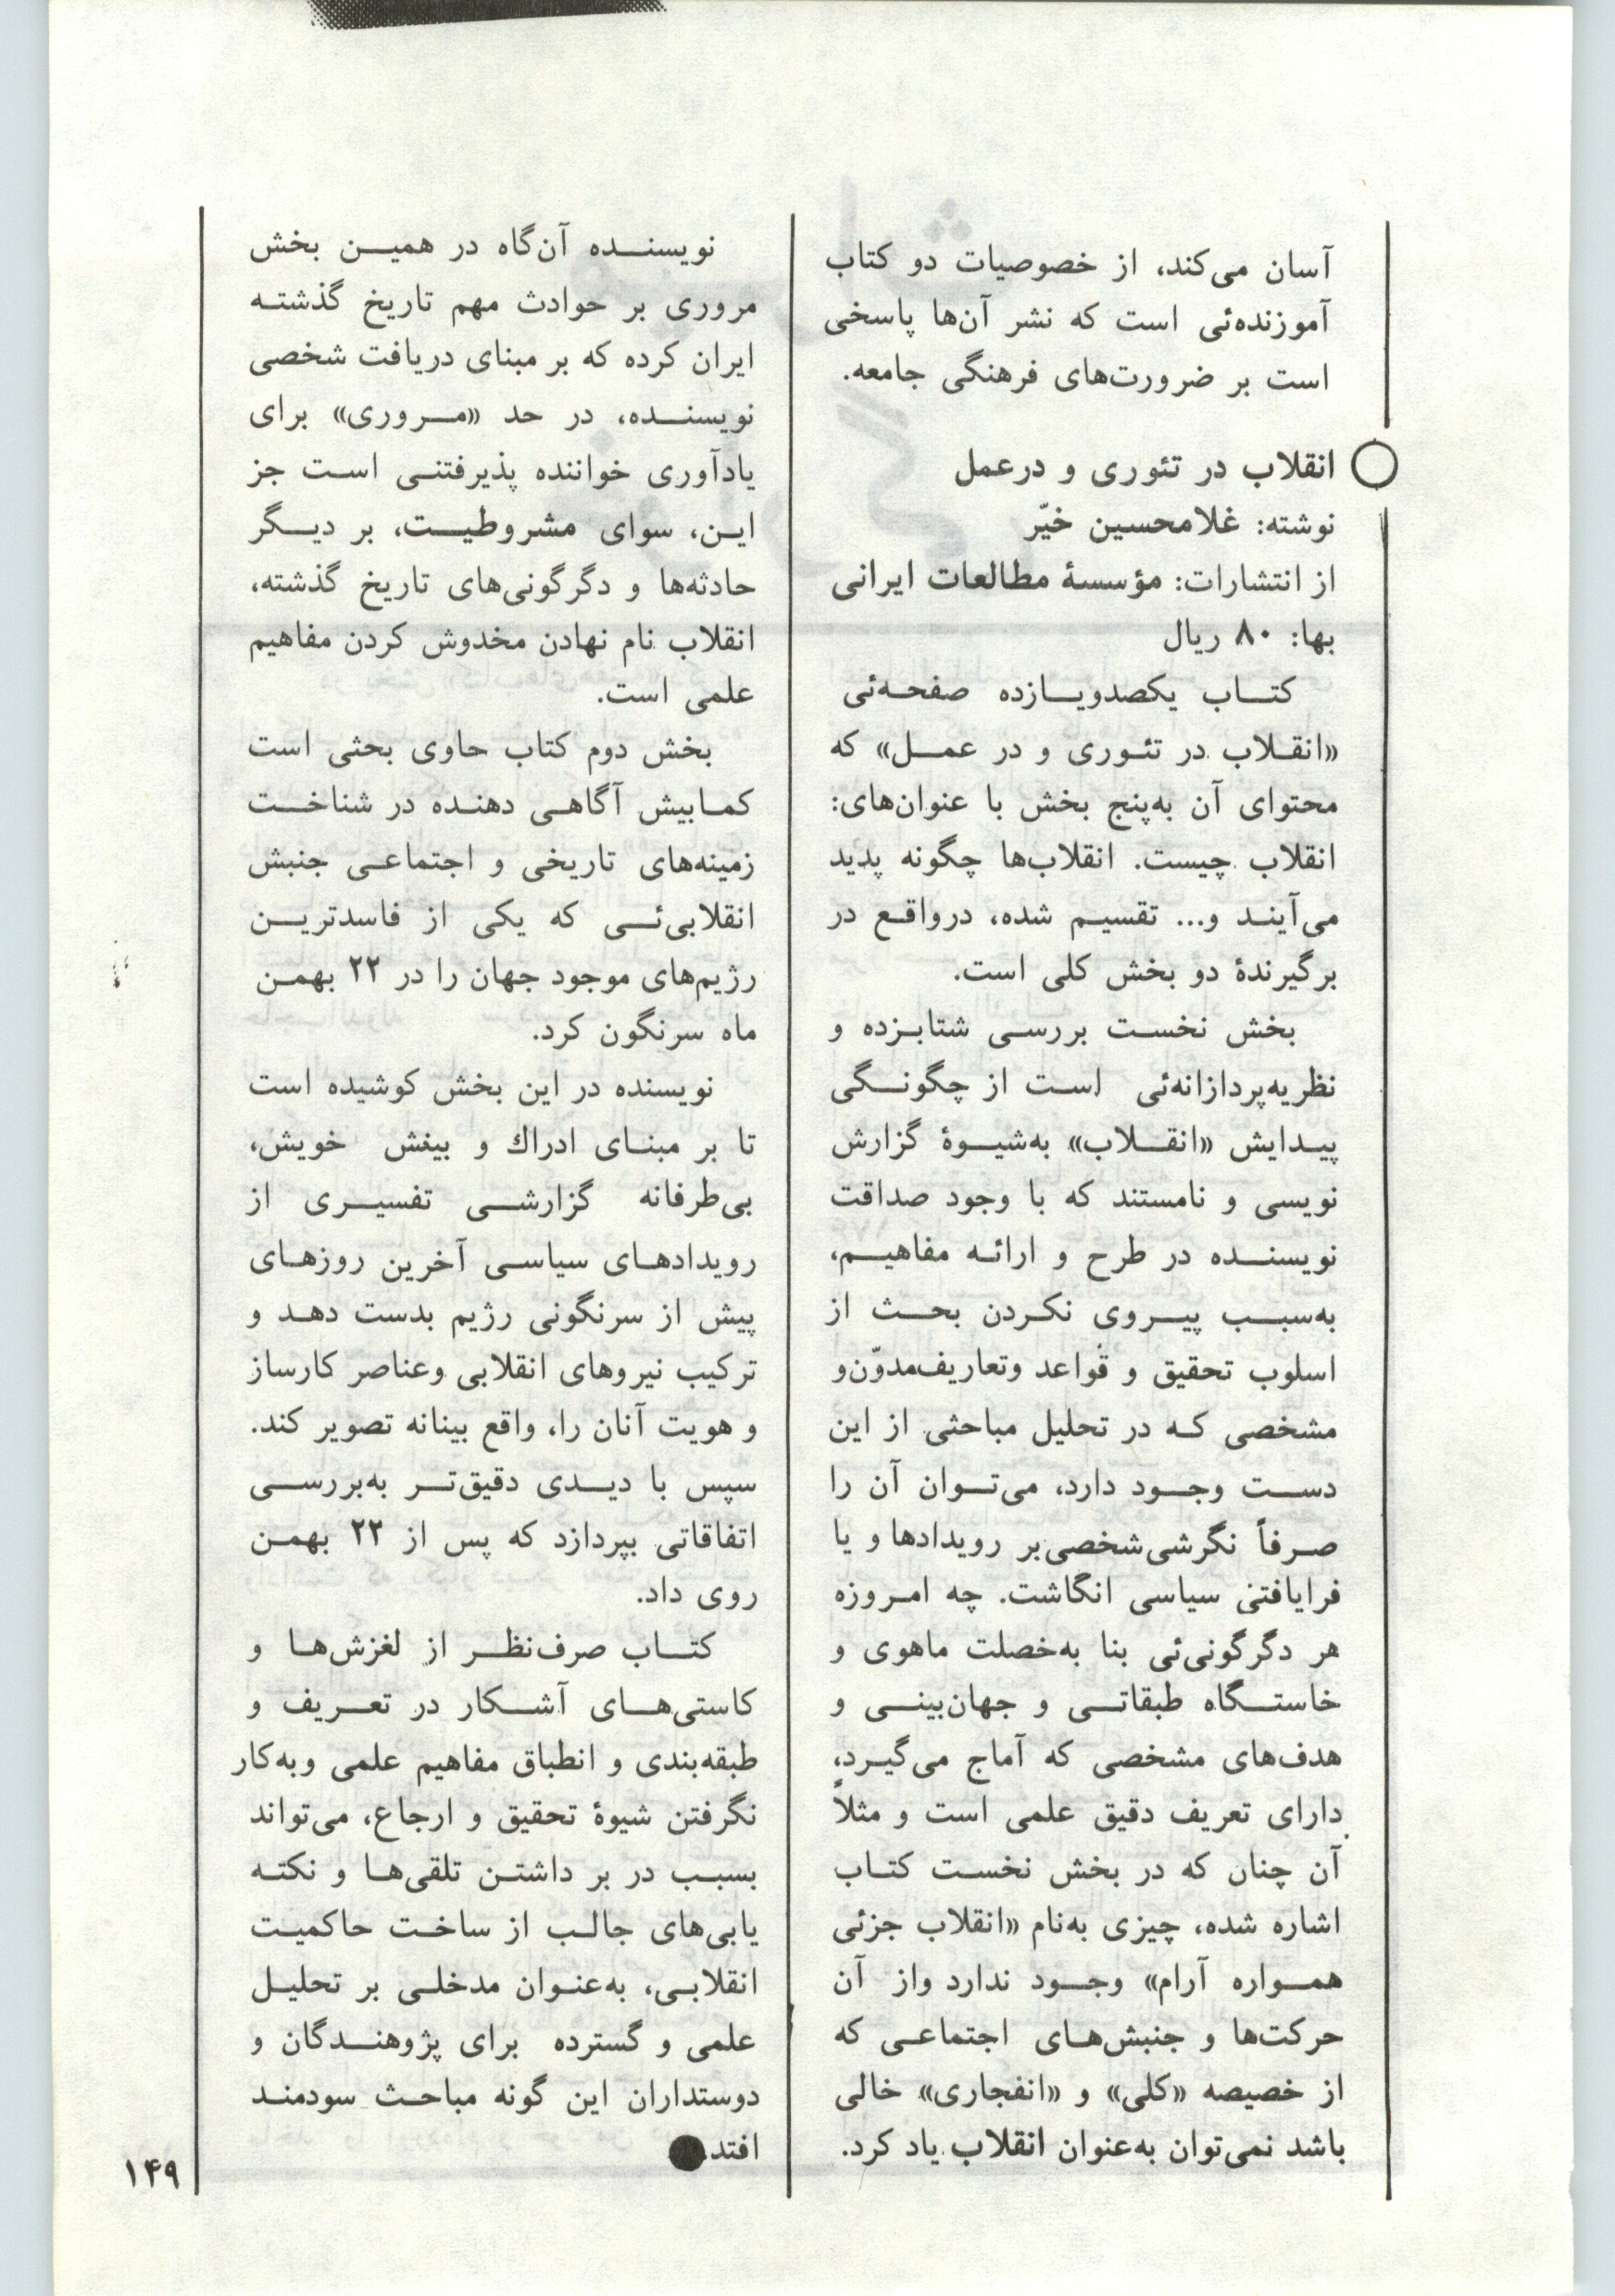 آسان می‌کند، از خصوصیات دو کتاب
آموزنده‌ئی است که نشر آن‌ها پاسخی
است بر ضرورت‌های فرهنگی جامعه.
انقلاب در تئوری و درعمل
نوشته: غلامحسین خیّر
از انتشارات: مؤسسهٔ مطالعات ایرانی
بها: ۸۰ ریال
کتاب یکصدویازده صفحه‌ئی
«انقلاب در تئوری و در عمل» که
محتوای آن به‌پنج بخش با عنوان‌های:
انقلاب چیست. انقلاب‌ها چگونه پدید
می‌آیند و... تقسیم شده، درواقع در
برگیرندهٔ دو بخش کلی است.
بخش نخست بررسی شتابزده و
نظریه‌پردازانه‌ئی است از چگونگی
پیدایش «انقلاب» به‌شیوهٔ گزارش
نویسی و نامستند که با وجود صداقت
نویسنده در طرح و ارائه مفاهیم،
به‌سبب پیروی نکردن بحث از
اسلوب تحقیق و قواعد وتعاریف‌مدوّن‌و
مشخصی که در تحلیل مباحثی از این
دست وجود دارد، می‌توان آن را
صرفاً نگرشی‌شخصی‌بر رویدادها و یا
فرایافتنی سیاسی انگاشت. چه امروزه
هر دگرگونی‌ئی بنا به‌خصلت ماهوی و
خاستگاه طبقاتی و جهان‌بینی و
هدف‌های مشخصی که آماج می‌گیرد،
دارای تعریف دقیق علمی است و مثلاً
آن چنان که در بخش نخست کتاب
اشاره شده، چیزی به‌نام «انقلاب جزئی
همواره آرام» وجود ندارد واز آن
حرکت‌ها و جنبش‌های اجتماعی که
از خصیصه «کلی» و «انفجاری» خالی
باشد نمی‌توان به‌عنوان انقلاب یاد کرد.
نویسنده آن‌گاه در همین بخش
مروری بر حوادث مهم تاریخ گذشته
ایران کرده که بر مبنای دریافت شخصی
نویسنده، در حد «مروری» برای
یادآوری خواننده پذیرفتنی است جز
این، سوای مشروطیت، بر دیگر
حادثه‌ها و دگرگونی‌های تاریخ گذشته،
انقلاب نام نهادن مخدوش کردن مفاهیم
علمی است.
بخش دوم کتاب حاوی بحثی است
کمابیش آگاهی دهنده در شناخت
زمینه‌های تاریخی و اجتماعی جنبش
انقلابی‌ئی که یکی از فاسدترین
رژیم‌های موجود جهان را در ۲۲ بهمن
ماه سرنگون کرد.
نویسنده در این بخش کوشیده است
تا بر مبنای ادراك و بینش خویش،
بی‌طرفانه گزارشی تفسیری از
رویدادهای سیاسی آخرین روزهای
پیش از سرنگونی رژیم بدست دهد و
ترکیب نیروهای انقلابی وعناصر کارساز
و هویت آنان را، واقع بینانه تصویر کند.
سپس با دیدی دقیق‌تر به‌بررسی
اتفاقاتی بپردازد که پس از ۲۲ بهمن
روی داد.
کتاب صرف‌نظر از لغزش‌ها و
کاستی‌های آشکار در تعریف و
طبقه‌بندی و انطباق مفاهیم علمی وبه‌کار
نگرفتن شیوهٔ تحقیق و ارجاع، می‌تواند
بسبب در بر داشتن تلقی‌ها و نکته
یابی‌های جالب از ساخت حاکمیت
انقلابی، به‌عنوان مدخلی بر تحلیل
علمی و گسترده برای پژوهندگان و
دوستداران این گونه مباحث سودمند
افتد.
۱۴۹